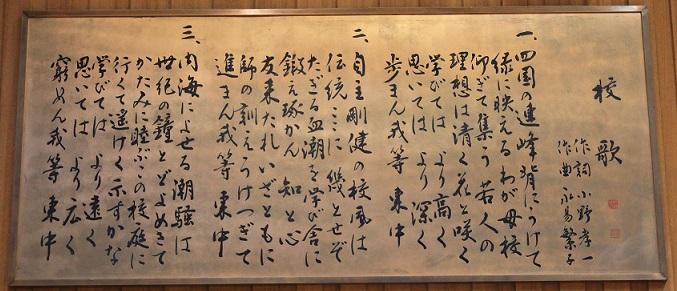 校歌
作詞 小野孝一
作曲 永易繁子
一、四国の連峰背にうけて
緑に映えるわが母校
仰ぎて集う若人の
理想は清く花と咲く
学びては より高く
思いては より深く
歩まん我等 東中
二、自主剛健の校風は
伝統ここに 幾とせぞ
たぎる血潮を学び舎に
鍛え琢かん 知と心
友来たれ いざともに
師の訓えうけつぎて
進まん我等 東中
三、内海によせる潮騒は
世紀の鐘と どよめきて
かたみに睦ぶこの校庭に
行くて遥けく示すかな
学びては より遠く
思いては より広く
窮めん我等 東中